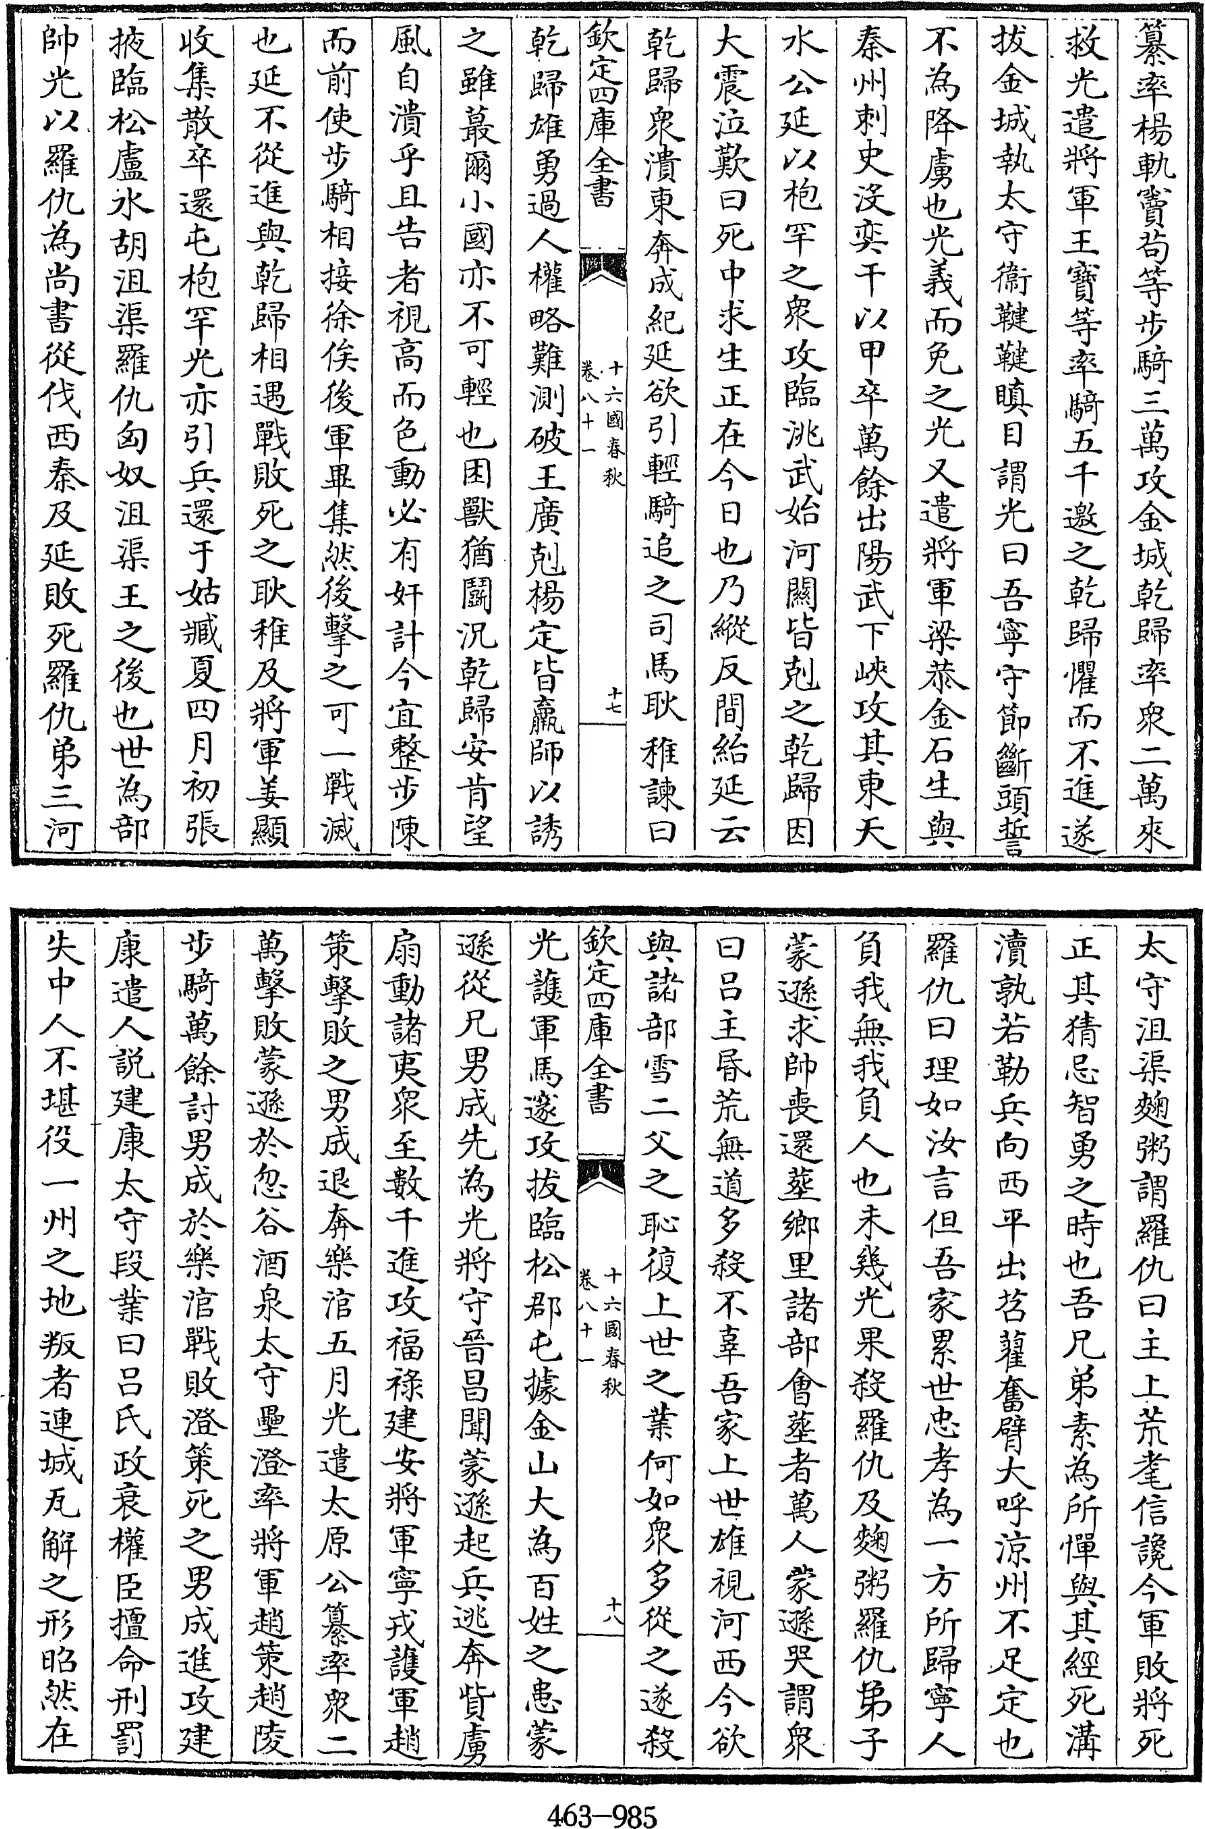 纂率楊軌竇苟等步騎三萬攻金城乾歸率衆二萬來
救光遣將軍王寶等率騎五千邀之乾歸懼而不進遂
拔金城執太守衞鞬鞬瞋目謂光曰吾寧守節斷頭誓
不為降虜也光義而免之光又遣將軍梁恭金石生與
秦州刺史沒奕干以甲卒萬餘出陽武下峽攻其東天
水公延以枹罕之衆攻臨洮武始河關皆剋之乾歸因
大震泣歎曰死中求生正在今日也乃縱反間紿延云
乾歸衆潰東奔成紀延欲引輕騎追之司馬耿稚諫曰
欽定四庫全書
十六國春秋
卷八十一
十七
乾歸雄勇過人權略難測破王廣剋楊定皆羸師以誘
之雖蕞爾小國亦不可輕也困獸猶鬬況乾歸安肯望
風自潰乎且告者視高而色動必有奸計今宜整步陳
而前使步騎相接徐俟後軍畢集然後擊之可一戰滅
也延不從進與乾歸相遇戰敗死之耿稚及將軍姜顯
收集散卒還屯枹罕光亦引兵還于姑臧夏四月初張
掖臨松盧水胡沮渠羅仇匈奴沮渠王之後也世為部
帥光以羅仇為尚書從伐西秦及延敗死羅仇弟三河
太守沮渠麴粥謂羅仇曰主上荒耄信讒今軍敗將死
正其猜忌智勇之時也吾兄弟素為所憚與其經死溝
瀆孰若勒兵向西平出苕藋奮臂大呼涼州不足定也
羅仇曰理如汝言但吾家累世忠孝為一方所歸寧人
負我無我負人也未幾光果殺羅仇及麴粥羅仇弟子
蒙遜求帥喪還塟鄉里諸部會塟者萬人蒙遜哭謂衆
曰呂主昏荒無道多殺不辜吾家上世雄視河西今欲
與諸部雪二父之恥復上世之業何如衆多從之遂殺
欽定四庫全書
十六國春秋
卷八十一
十八
光護軍馬邃攻拔臨松郡屯據金山大為百姓之患蒙
遜從兄男成先為光將守晉昌聞蒙遜起兵逃奔貲虜
扇動諸夷衆至數千進攻福祿建安將軍寧戎護軍趙
策擊敗之男成退奔樂涫五月光遣太原公纂率衆二
萬擊敗蒙遜於忽谷酒泉太守壘澄率將軍趙策趙陵
步騎萬餘討男成於樂涫戰敗澄策死之男成進攻建
康遣人説建康太守段業曰呂氏政衰權臣擅命刑罰
失中人不堪役一州之地叛者連城瓦解之形昭然在
463-985